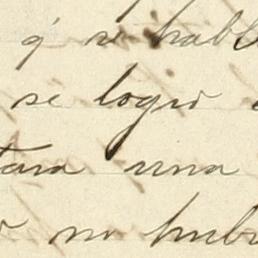 q' se habl
se logró
tara una
no hub